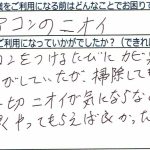 をご利用になる前はどんなことでお困りで
アコンのニオイ
ご利用になっていかがでしたか？（できれ
コンをつけるたびにカビ臭
がしていたが、掃除しても
一切ニオイが気にならな
くやってもらえば良かった